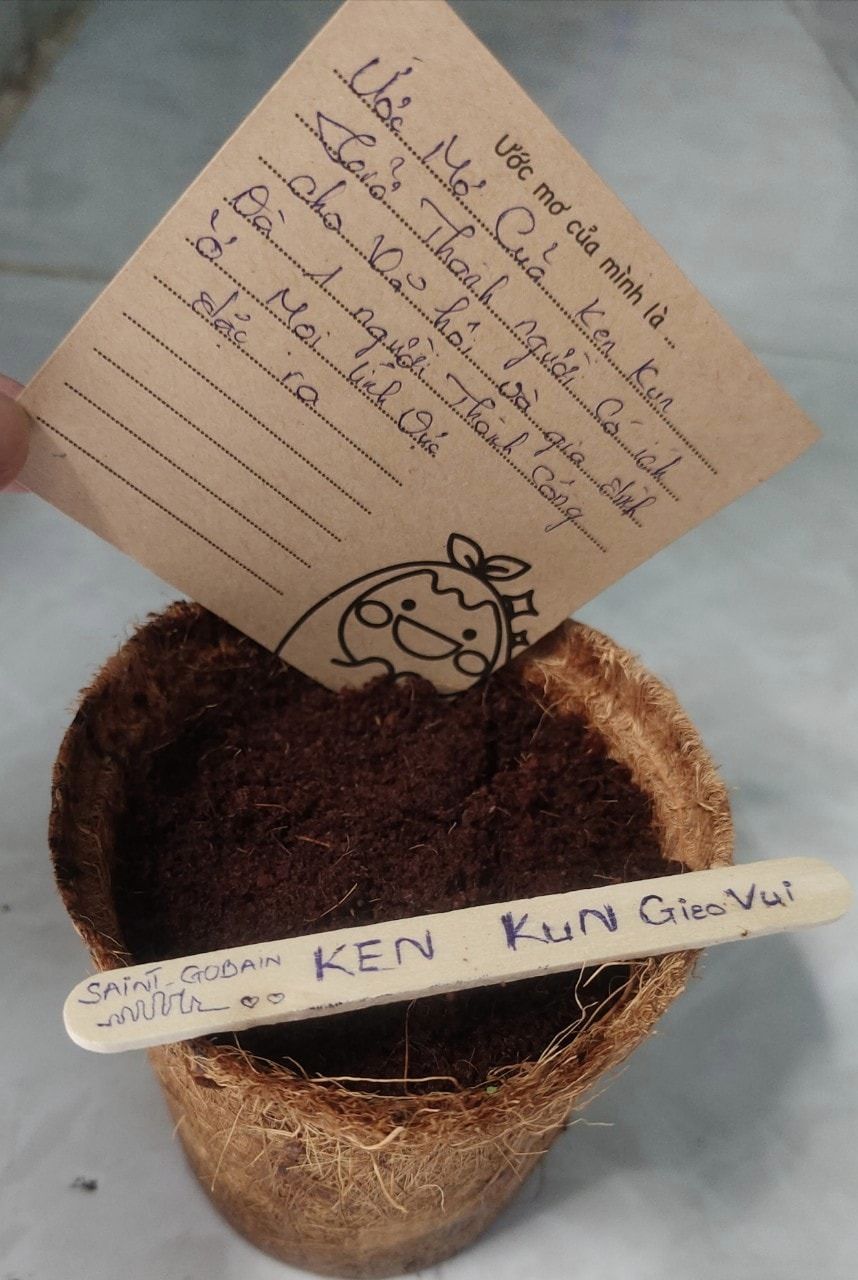 Ước mơ của mình là...
Ước Mơ Của Ken Kun
Thành người có ích
cho xã hội và gia đình
Là 1 người Thành công
ở Mọi lĩnh Vực
đặc ra
SAINT-GOBAIN KEN KuN Gieo Vui